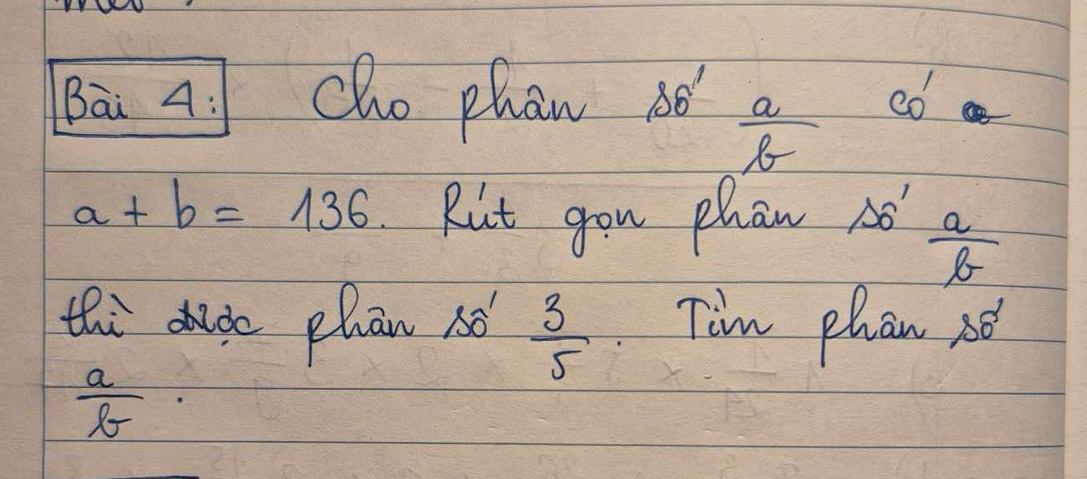 Bài 4: Cho phân số a/b có
a + b = 136. Rút gọn phân số a/b
thì được phân số 3/5. Tìm phân số
a/b.